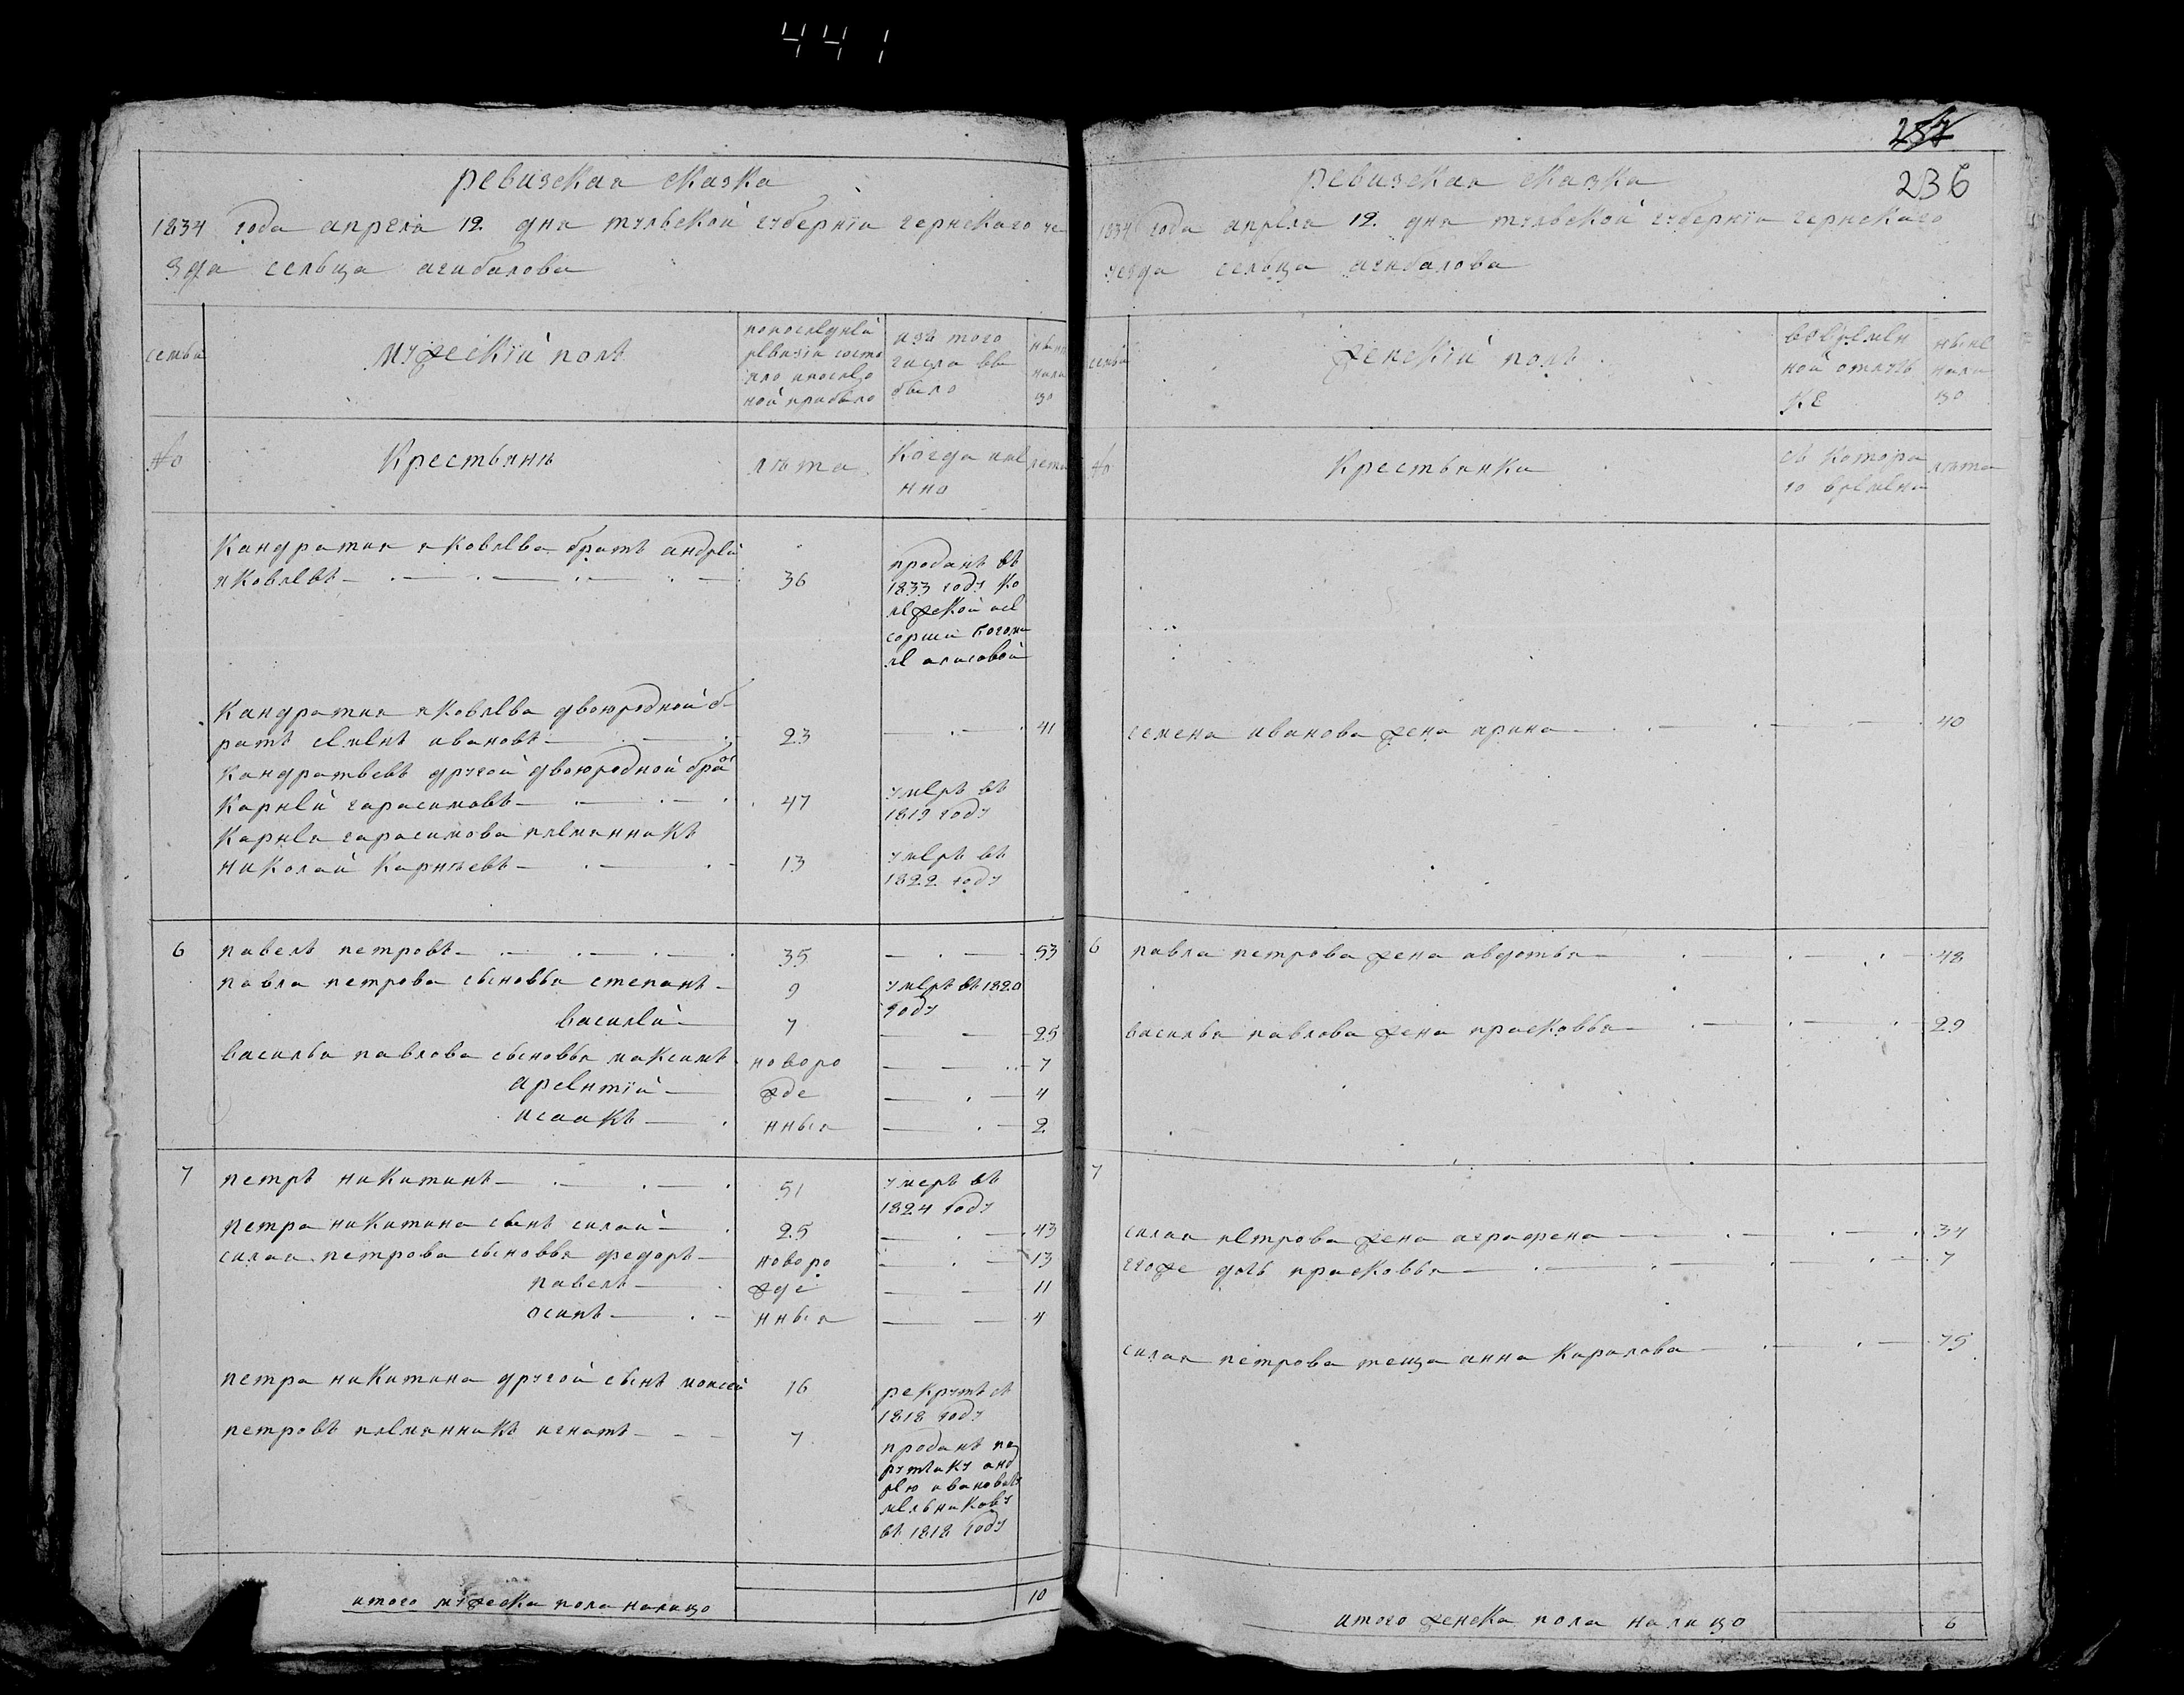 441
ревизская сказка
1834 года апреля 12 дня тульской губернїи чернскаго уе
зда сельца агибалова
семьи
мужескїй полъ
попоследней
ревизїи состо
яло ипослѣ
оной прибыло
изъ того
числа вы
было
ныне
нали
цо
№
Крестьянѣ
лѣта
Когда име
нно
лета
Кандратия яковлева братъ андрей
яковлевъ 36
проданъ въ
1833 году ко
лежской асе
сорши
Кандратия яковлева двоюродной б
ратъ семенъ ивановъ 23 41
Кандратьевъ другой двоюродной братъ
Карней гарасимовъ 47 умеръ въ
1819 году
Карнея гарасимова племянникъ
николай Карнѣевъ 13 умеръ въ
1822 году
6 павелъ петровъ 35 53
павла петрова сыновья степанъ 9 умеръ въ 1820
году
василей 7 25
василья павлова сыновья максимъ новоро 7
арентїй жде 4
исаакъ нныя 2
7 петръ никитинъ 51 умеръ въ
1824 году
петра никитина сынъ силай 25 43
силая петрова сыновья федоръ новоро 13
павелъ жде 11
осипъ нныя 4
петра никитина другой сынъ моисей 16 рекрутъ съ
1818 году
петровъ племянникъ игнатъ 7 проданъ по
ручику анд
рею ивановечу
мельникову
въ 1818 году
итого мужеска пола налицо 10
237
236
ревизская сказка
1834 года апреля 12 дня тульской губернїи чернскаго
уезда сельца агибалова
семьи
женскїй полъ
вовремен
ной отлуч
ке
ныне
нали
цо
№
Крестьянки
съ котора
го времени
лѣта
семена иванова жена арина 40
6 павла петрова жена авдотья 48
василья павлова жена прасковья 29
7
силая петрова жена аграфена 34
егоже дочь прасковья 7
силая петрова теща анна Кирилова 75
итого женска пола налицо 6